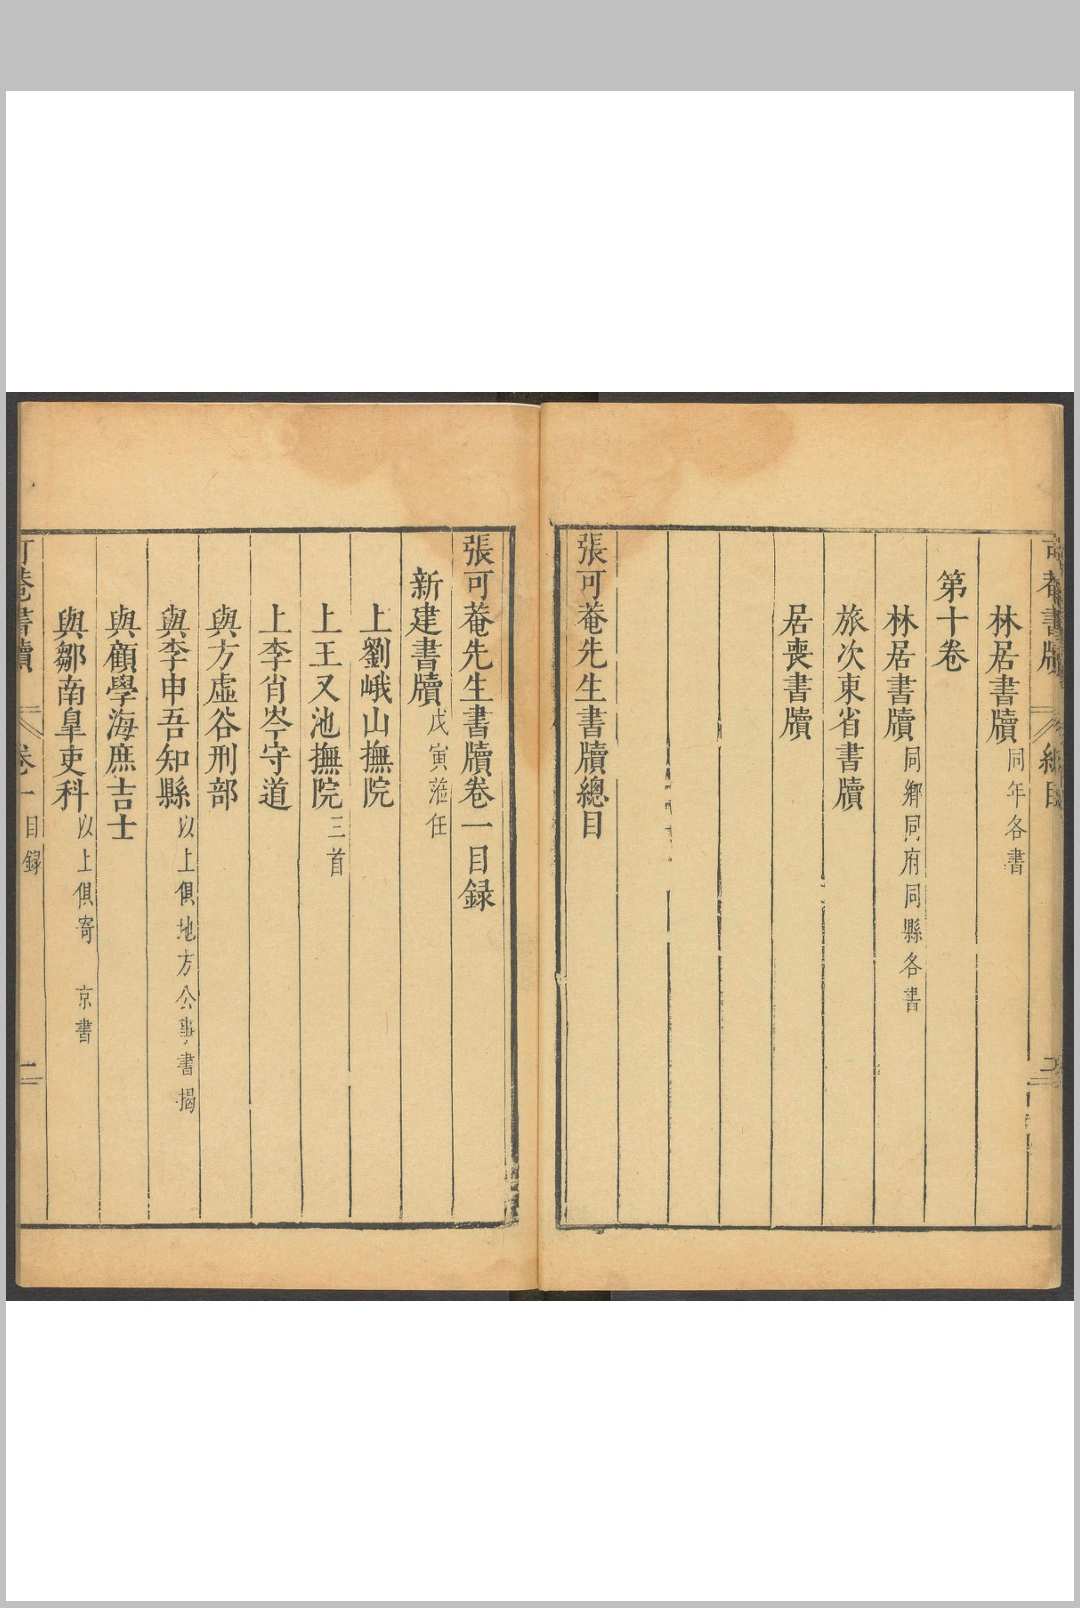 林居書牘同年各書
第十卷
林居書牘同鄉同府同縣各書
旅次東省書牘
居喪書牘
張可菴先生書牘總目
張可菴先生書牘卷一目録
新建書牘戊寅蒞任
上劉峨山撫院
上王又池撫院三首
上李肖岑守道
與方虛谷刑部
與李申吾知縣以上俱地方公事書揭
與顧學海庶吉士
與鄒南皐吏科以上俱寄 京書
可菴書牘 卷一目録 二